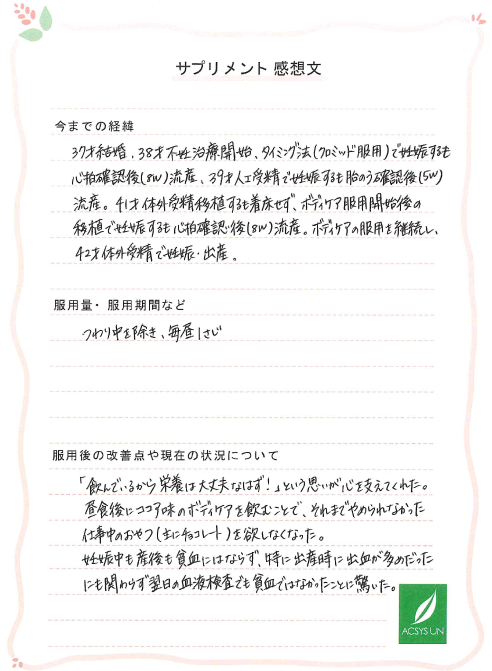 サプリメント 感想文
今までの経緯
37才結婚、38才不妊治療開始、タイミング法(クロミッド服用)で妊娠するも
心拍確認後(8w)流産、39才人工受精で妊娠する胎のう確認後(5w)
流産。41才体外受精移植するも着床せず、ボディケア服用開始後の
移植で妊娠するも心拍確認後(8w)流産。ボディケアの服用を継続し、
42才体外受精で妊娠・出産。
服用量・服用期間など
つわり中を除き、毎昼1さじ
服用後の改善点や現在の状況について
「飲んでいるから栄養は大丈夫なはず!」という思いが心を支えてくれた。
昼食後にココア味のボディケアを飲むことで、それまでやめられなかった
仕事中のおやつ(主にチョコレート)を欲しなくなった。
妊娠中も産後も貧血にはならず、特に出産時に出血が多めだった
にも関わらず翌日の血液検査でも貧血ではなかったことに驚いた。
ACSYSUN